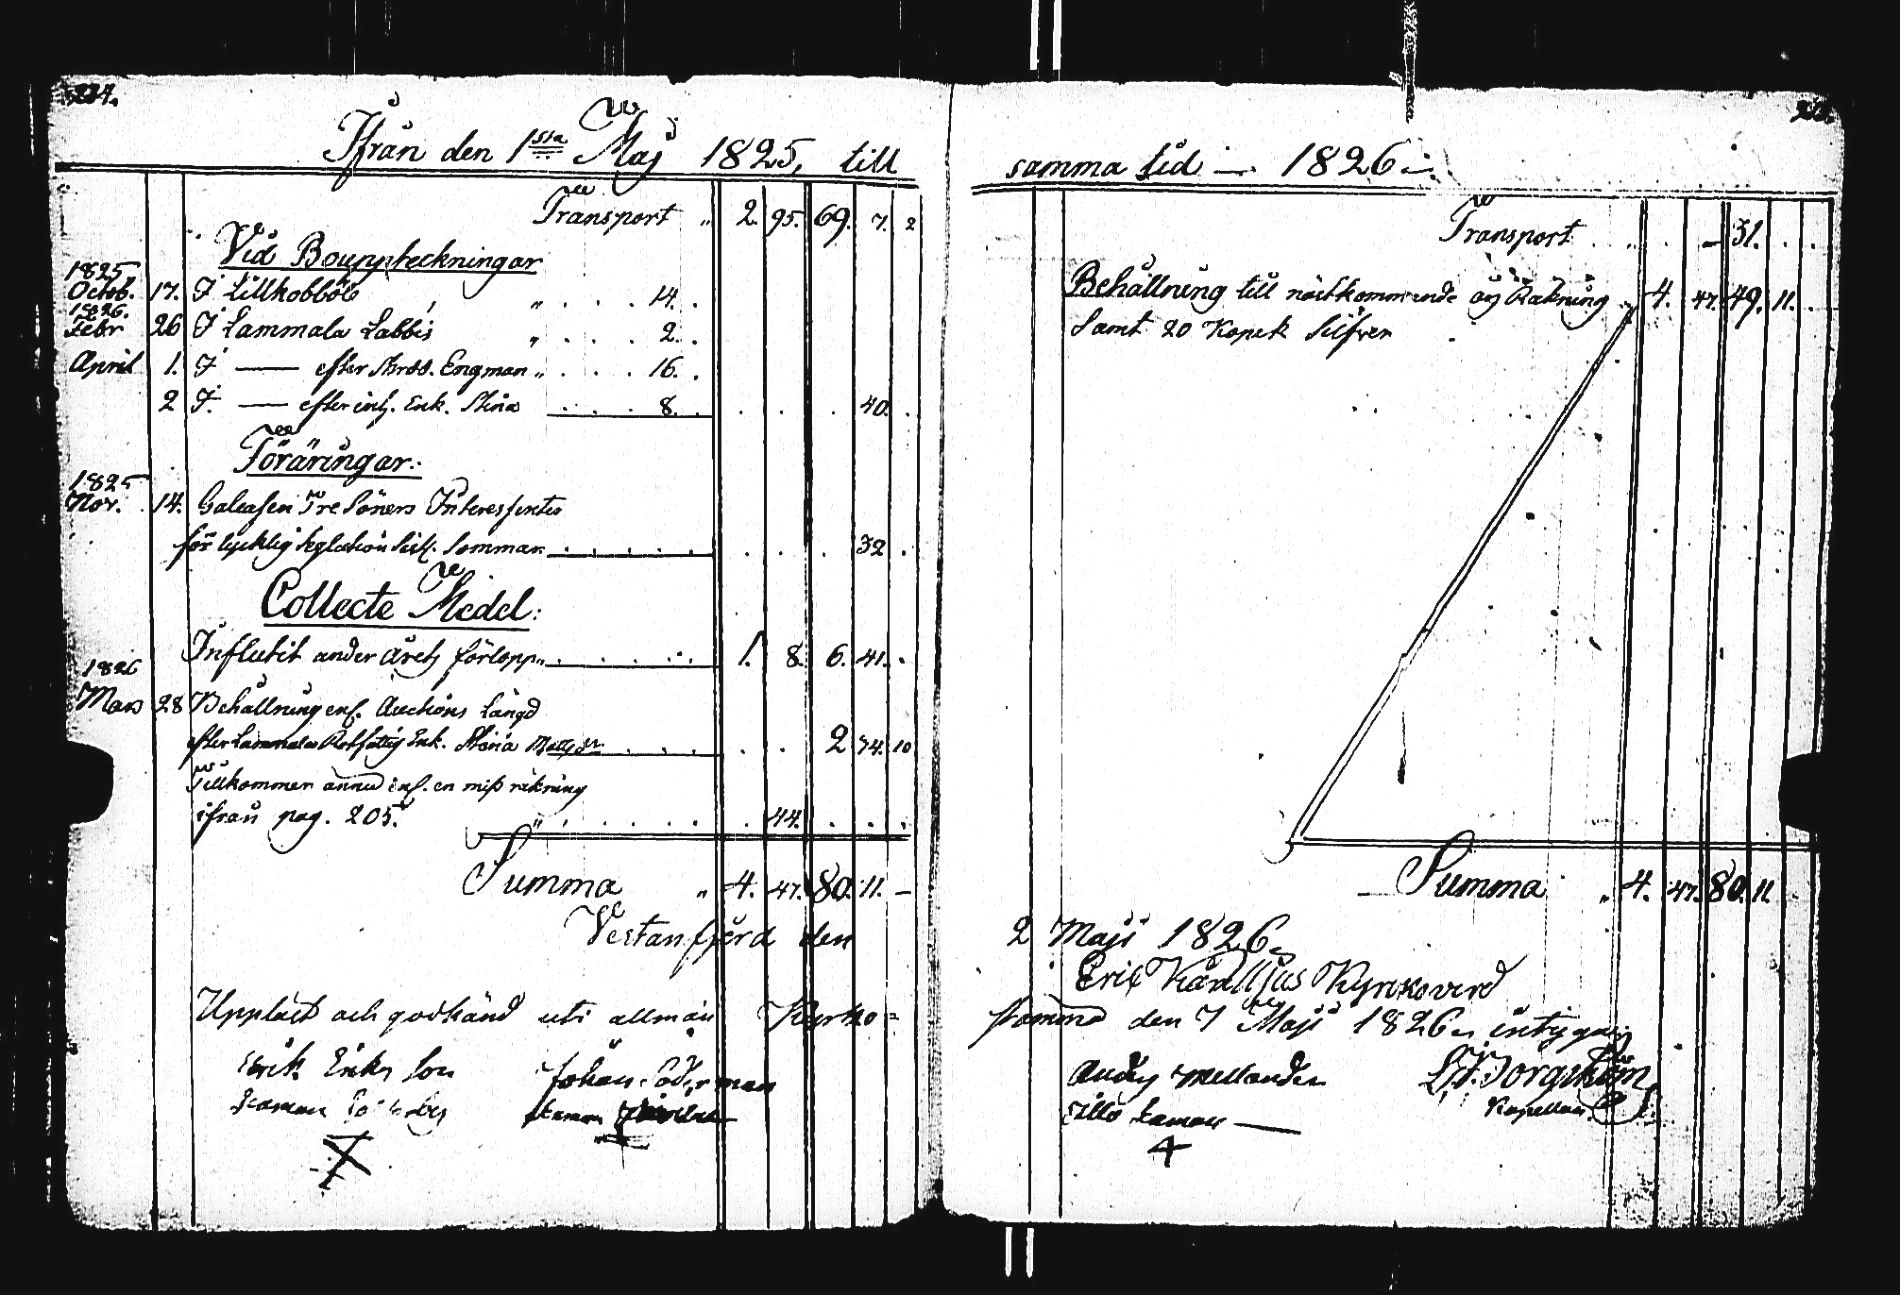 224.
Ifrån den 1sta Maj 1825, till
Transport " 2. 95. 69. 7. 2
Vid Bouppteckningar
1825
Octob. 17. I Lillkobböle " . . . . 14. .
1826.
Febr 26 I Lammala Labbis " . . . . 2. .
April 1. I — efter Arbs. Engman " . . . . 16. .
2 I. — efter inh. Enk. Stina . . . . 8. . . . . 40. .
Föräringar:
1825
Nov. 14. Galeasen Tre Söners Interessenter
för lycklig Seglation sistl. Sommar . . . . . . . . . 32 .
Collecte Medel:
Influtit under årets förlopp " . . . . . 1. 8. 6. 41. .
1826
Mars 28 Behållning enl. Auctions Längd
efter Lammala Rotfattig Enk. Stina Matts dr . . . . . . 2 74. 10
Tillkommer ännu enl. en miss räkning
ifrån pag. 205. " . . . . . . 44. . . .
Summa " 4. 47. 80. 11. –
Vestanfjerd den
Uppläst och godkänd uti allmän Kyrko=
Erik Eriks Son Johan Söderman
Laman Söderby Laman
samma tid — 1826 —
Transport . . " . . – 31. . .
Behållning till nästkommande års Räkning " 4. 47. 49. 11. .
Samt 20 Kopek Silfver
Summa " 4. 47. 80. 11
2 Maji 1826.
Eric Kärilljus Kyrkovärd
stämma den 7 Maji 1826, intygar
Anders Mellander
Kapellan.